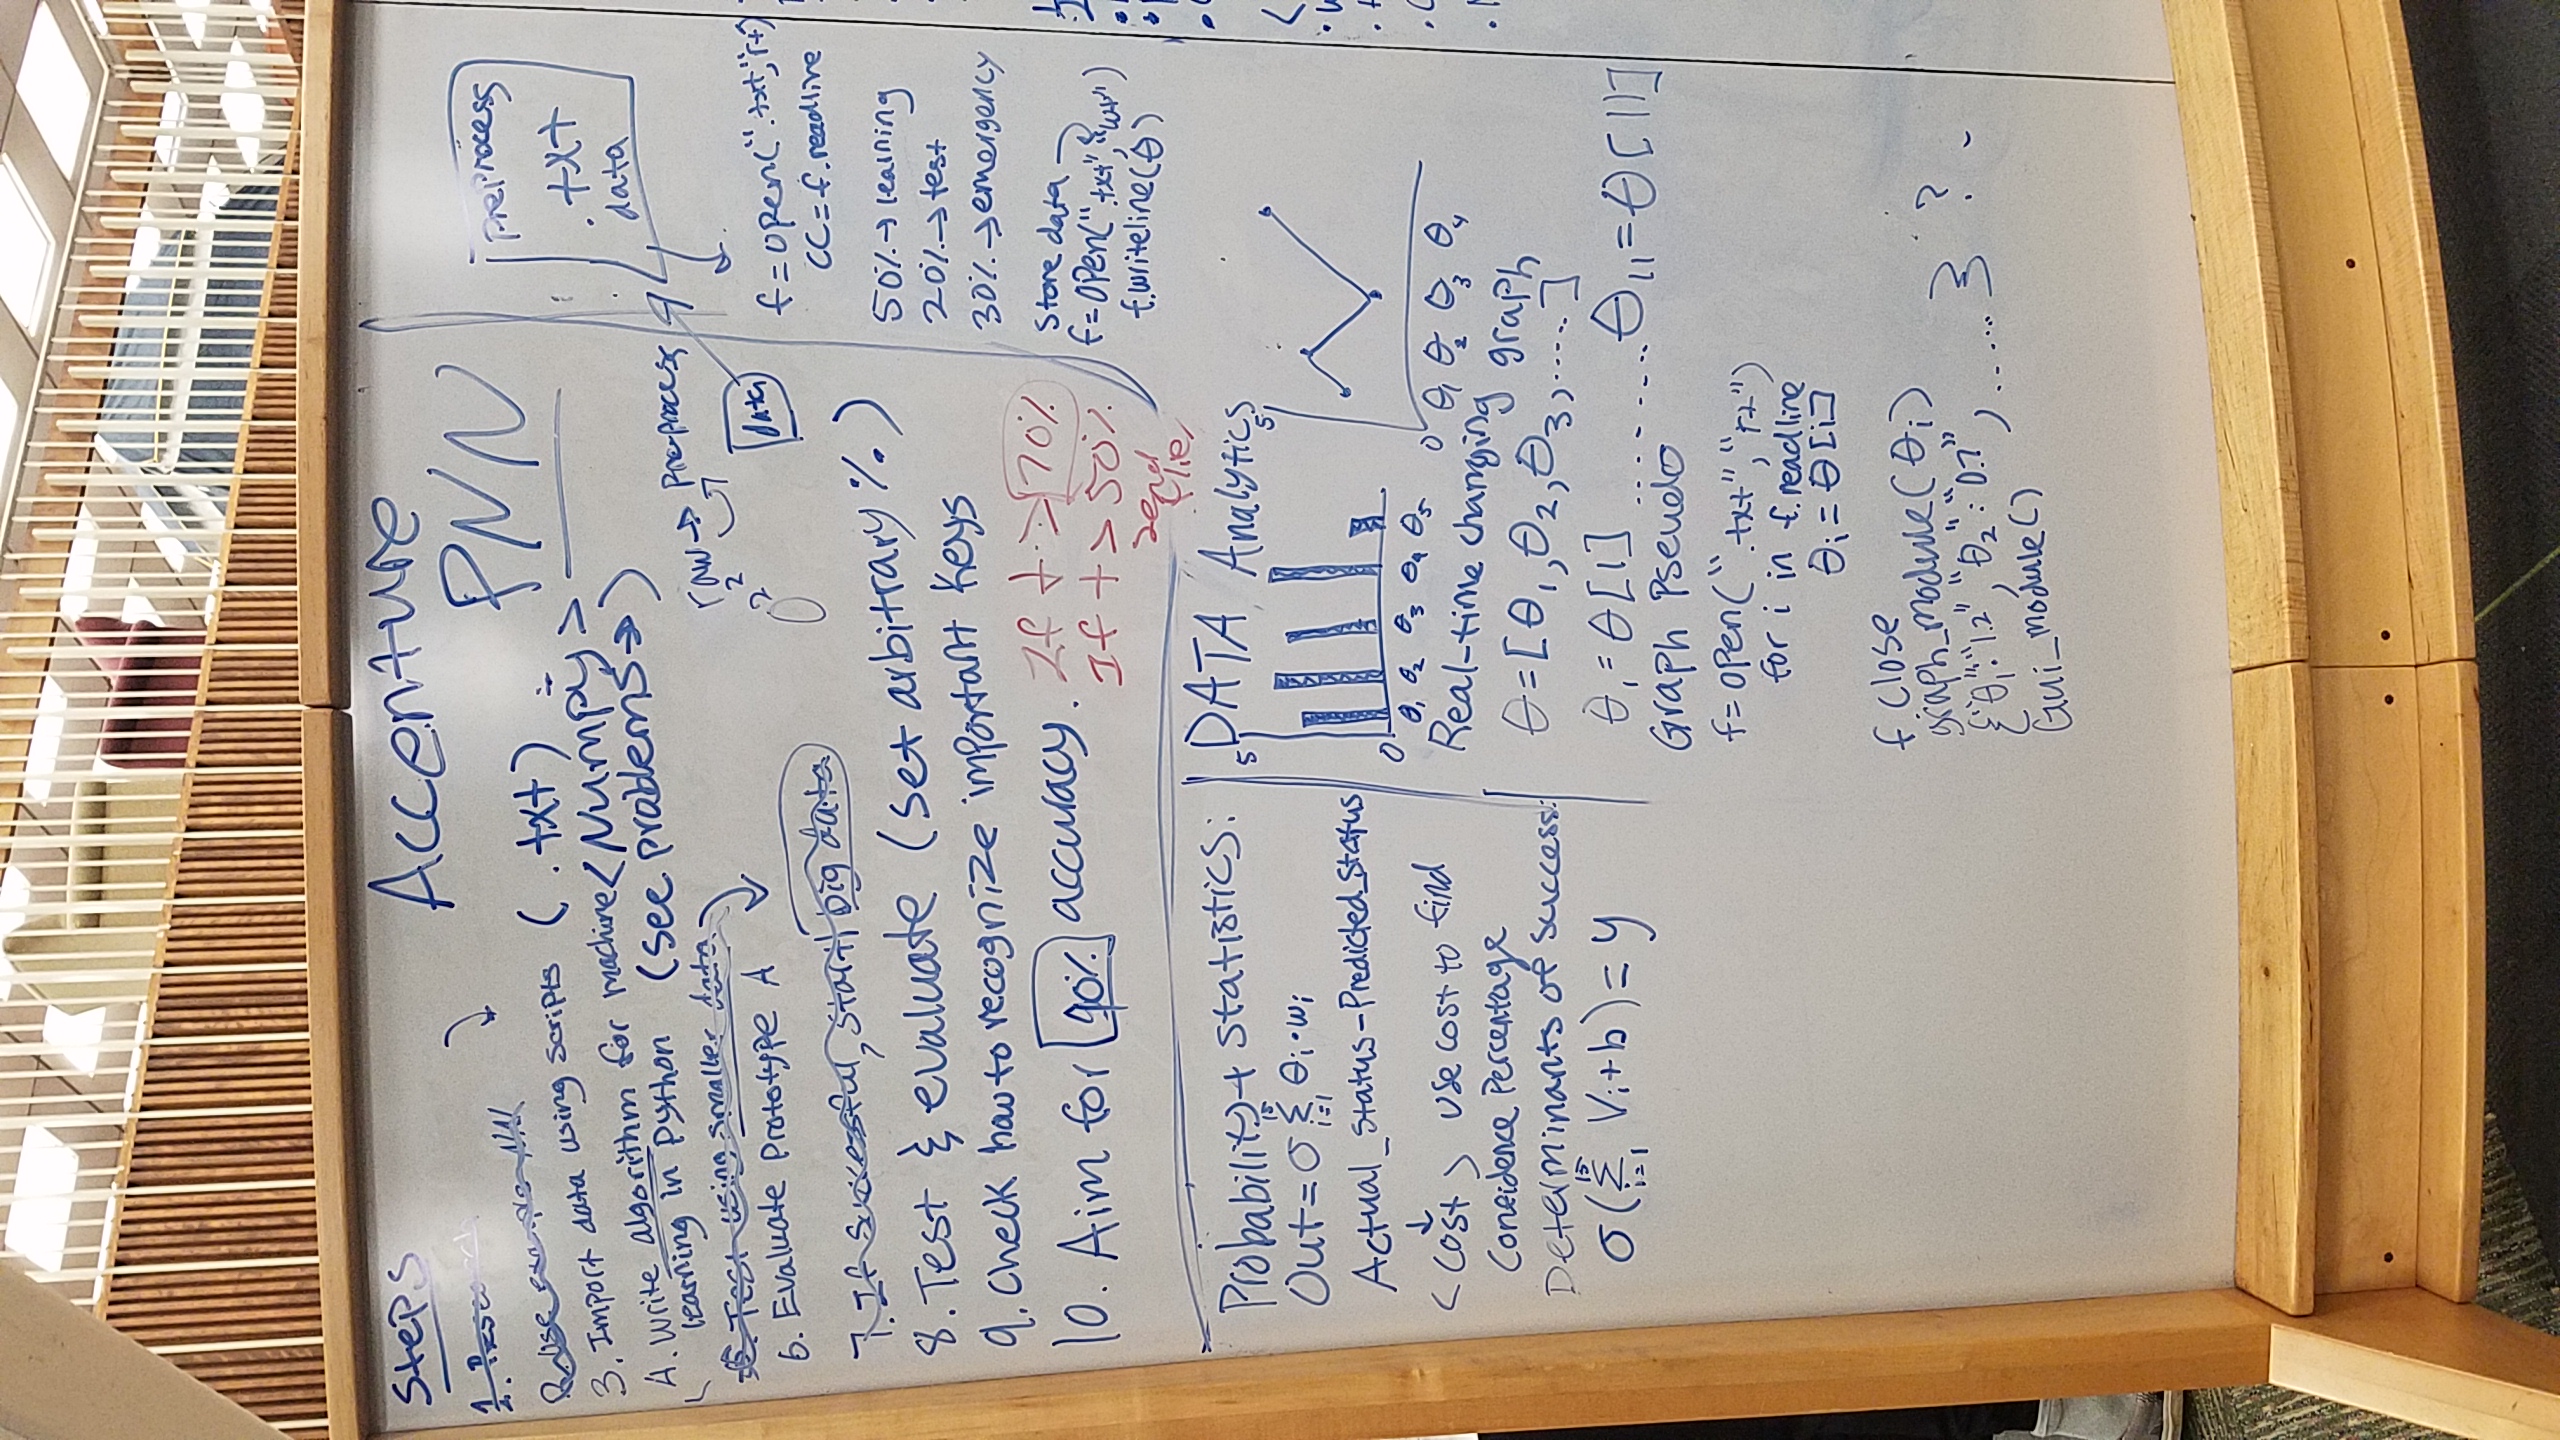 Steps
Accenture
PNN
3. Import data using scripts (.txt)
4. Write algorithm for machine <Numpy>
learning in python (see problems→)
5. Test using smaller data
6. Evaluate Prototype A
7. If successful, start big data
8. Test & evaluate (set arbitrary %)
9. Check how to recognize important keys
10. Aim for 90% accuracy.
If + > 70%
If + > 50%
raw → Preprocess
Data
Preprocess
.txt
data
f = open(".txt", r+)
cc = f.readline
50% → learning
20% → test
30% → emergency
Store data
f = open(".txt", "w+")
f.writeline(θ)
Probability + Statistics:
Out = σ Σ θi·wi
i=1
Actual_Status - Predicted_Status
<Cost> use cost to find
Confidence Percentage
Determinants of success:
σ(Σ Vi + b) = y
i=1
DATA Analytics
5
0
θ1 θ2 θ3 θ4 θ5
5
0
θ1 θ2 θ3 θ4
Real-time changing graph
θ = [θ1, θ2, θ3, .....]
θ1 = θ[1] ......... θ11 = θ[11]
Graph Pseudo
f = open(".txt", "r+")
for i in f.readline
θi = θ[i]
f close
graph_module(θi)
Gui_module()